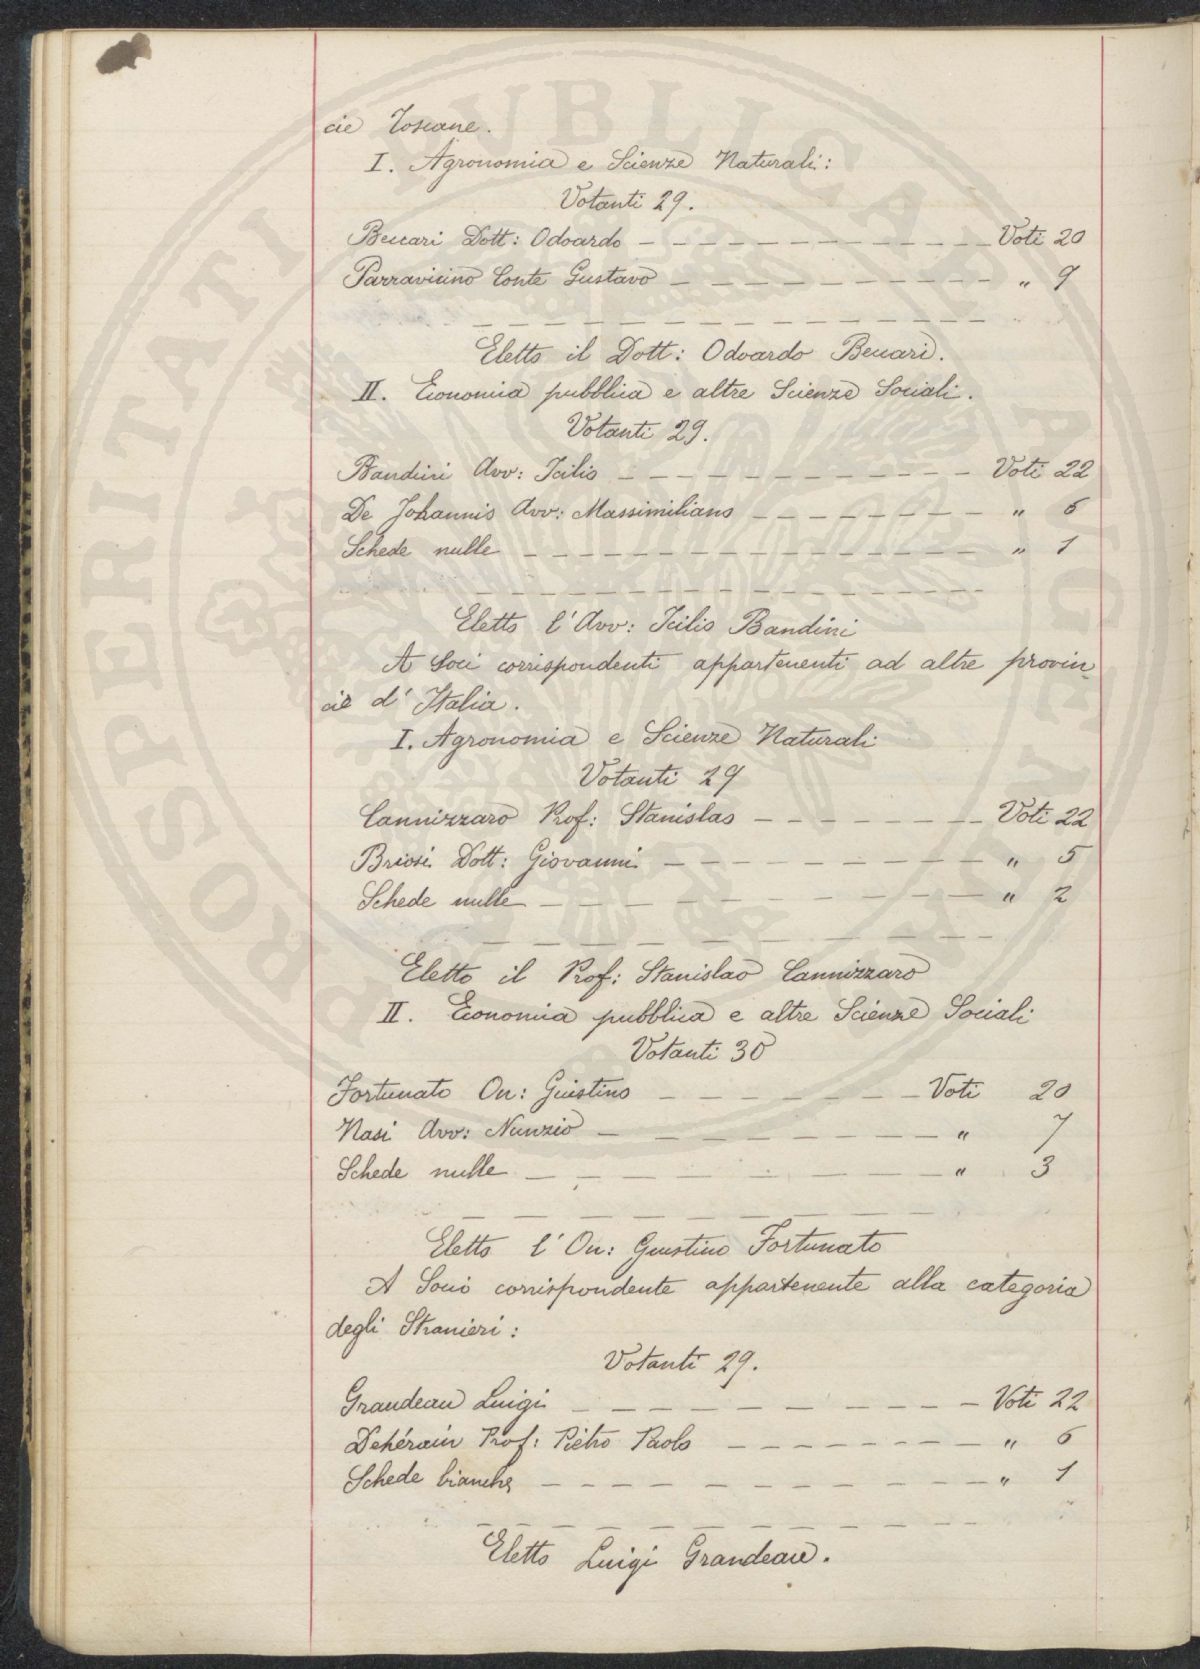 cie Toscane.
I. Agronomia e Scienze Naturali:
Votanti 29.
Beccari Dott: Odoardo — — — — — — — — — — — — Voti 20
Parravicino Conte Gustavo — — — — — — — — — — — " 9
Eletto il Dott: Odoardo Beccari.
II. Economia pubblica e altre Scienze Sociali.
Votanti 29.
Bandini Avv: Icilio — — — — — — — — — — — — Voti 22
De Johannis Avv: Massimiliano — — — — — — — — " 6
Schede nulle — — — — — — — — — — — — — — " 1
Eletto l'Avv: Icilio Bandini
A Soci corrispondenti appartenenti ad altre provin-
cie d'Italia.
I. Agronomia e Scienze Naturali
Votanti 29
Cannizzaro Prof: Stanislao — — — — — — — — Voti 22
Briosi Dott: Giovanni — — — — — — — — — — " 5
Schede nulle — — — — — — — — — — — — — " 2
Eletto il Prof: Stanislao Cannizzaro
II. Economia pubblica e altre Scienze Sociali
Votanti 30
Fortunato On: Giustino — — — — — — — Voti 20
Nasi Avv: Nunzio — — — — — — — — — " 7
Schede nulle — — — — — — — — — — — " 3
Eletto l'On: Giustino Fortunato
A Socio corrispondente appartenente alla categoria
degli Stranieri:
Votanti 29.
Grandeau Luigi — — — — — — — — — — — Voti 22
Dehérain Prof: Pietro Paolo — — — — — — — — " 6
Schede bianche — — — — — — — — — — — — " 1
Eletto Luigi Grandeau.
PROSPERITATI PUBLICAE AUGENDAE